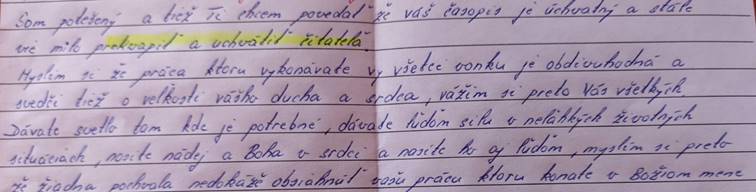 Som potešený a tiež Ti chcem povedať že váš časopis je úchvatný a stále
vie milo prekvapiť a uchvátiť čitateľa.
Myslím si že práca ktoru vykonávate vy všetci vonku je obdivuhodná a
svedčí tiež o velkosti vášho ducha a srdca, vážim si preto Vás všetkých
Dávate svetlo tam kde je potrebné, dávate ľúdom silu v neľáhkých životných
situáciach, nosíte nádej a Boha v srdci a nosíte ho aj ľúdom, myslím si preto
že žiadna pochvala nedokáže obsiahnúť vašu prácu ktoru konáte v Božiom mene